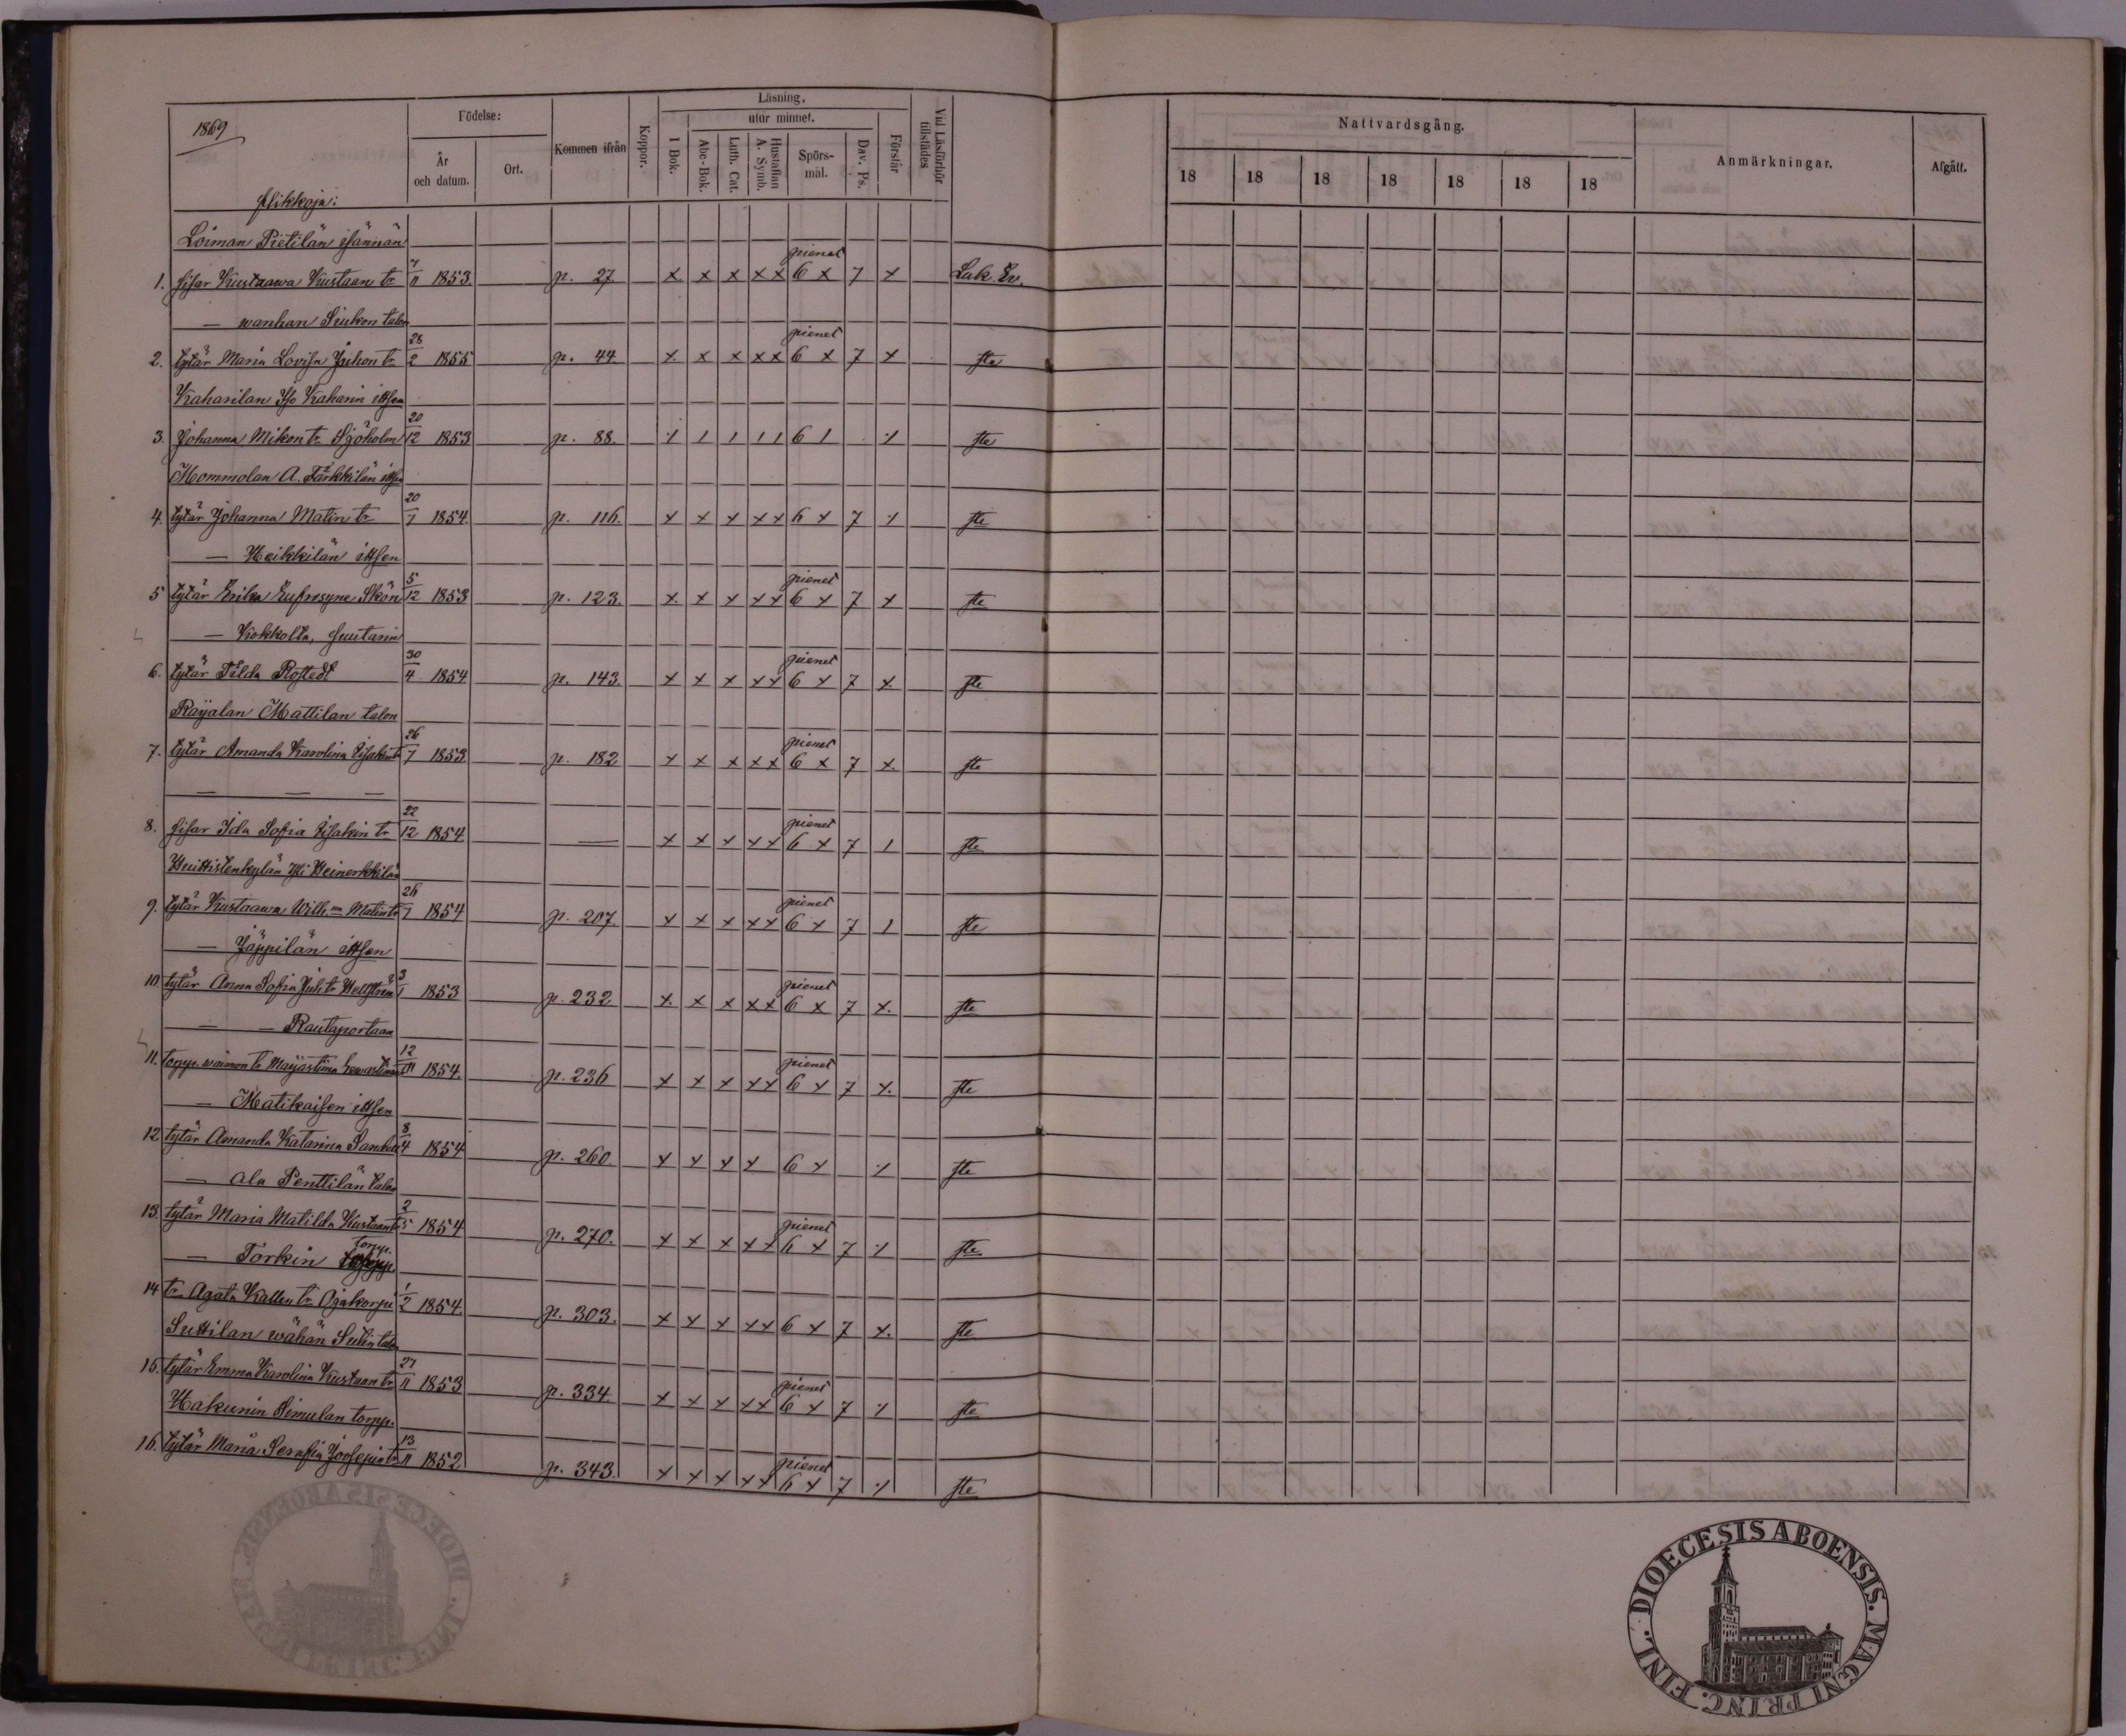 1869
Födelse:
År och datum.
Ort.
Kommen ifrån
Koppor.
Läsning.
utur minnet.
I Bok.
Abc-Bok.
Luth. Cat.
Hustaflan A. Symb.
Spörs-mål.
Dav. Ps.
Förstår
Vid Läsförhör tillstädes
Nattvardsgång.
18 18 18 18 18 18 18
Anmärkningar.
Afgått.
flikkoja:
Loiman Pietilän isännän
1. sisar Kustaawa Kustaan tr 7/11 1853. p. 27 x x x x x pienet 6 x 7 x Luk. Ev.
— wanhan Siukon talon
2. tytär Maria Lovisa Juhon tr 28/2 1855 p. 44 x x x x x pienet 6 x 7 x ste
Kaharilan Iso Kaharin ittsen
3. Johanna Mikon tr Sjöholm 20/12 1853 p. 88. 6 1 ste
Mommolan A. Tärkkilän ittsen
4. tytär Johanna Matin tr 20/7 1854. p. 116. x x x x x 6 x 7 ste
— Heikkilän ittsen
5 tytär Erika Eufrosyne Skön 5/12 1853 p. 123. x x x x x pienet 6 x 7 x ste
— Kokkolta, suutarin
6. tytär Tilda Rostedt 30/4 1854 p. 143. x x x x x pienet 6 x 7 x ste
Raijalan Mattilan talon
7. tytär Amanda Karolina Iisakin tr 26/7 1853. p. 182 x x x x x pienet 6 x 7 x ste
— — —
8. sisar Ida Sofia Iisakin tr 22/12 1854 — x x x x x pienet 6 x 7 1 ste
Huittistenkylän Yli Heinerkkilän
9. tytär Kustaawa Matin tr 26/7 1854 p. 207. x x x x x pienet 6 x 7 1 ste
— Jäppilän ittsen
10. tytär Anna Sofia Juh. tr Hellsten 3/1 1853 p. 232 x x x x x pienet 6 x 7 x. ste
— — Rautaportaan
11. torpp. waimon tr 12/11 1854. p. 236 x x x x x pienet 6 x 7 x. ste
— Matikaisen ittsen
12 tytär Amanda Katarina 8/4 1854 p. 260. x x x x 6 x ste
— Ala Penttilän talon
13. tytär Maria Matilda Kustaan tr 2/5 1854 p. 270. x x x x x pienet 6 x 7 ste
— Torkin torpp.
14 tr. Agata Kallen tr. Ojakorpi 1/2 1854. p. 303. x x x x x 6 x 7 x. ste
Suttilan wähän Sutin talon
15. tytär Emma Karolina Kustaan tr 27/11 1853 p. 334. x x x x x pienet 6 x 7 ste
Hakunin Simulan torpp.
16. tytär Maria Serafia Joosepin tr 13/11 1852 p. 343. x x x x x pienet 6 x 7 ste
DIOECESIS ABOENSIS. MAGNI PRINC. FINL.